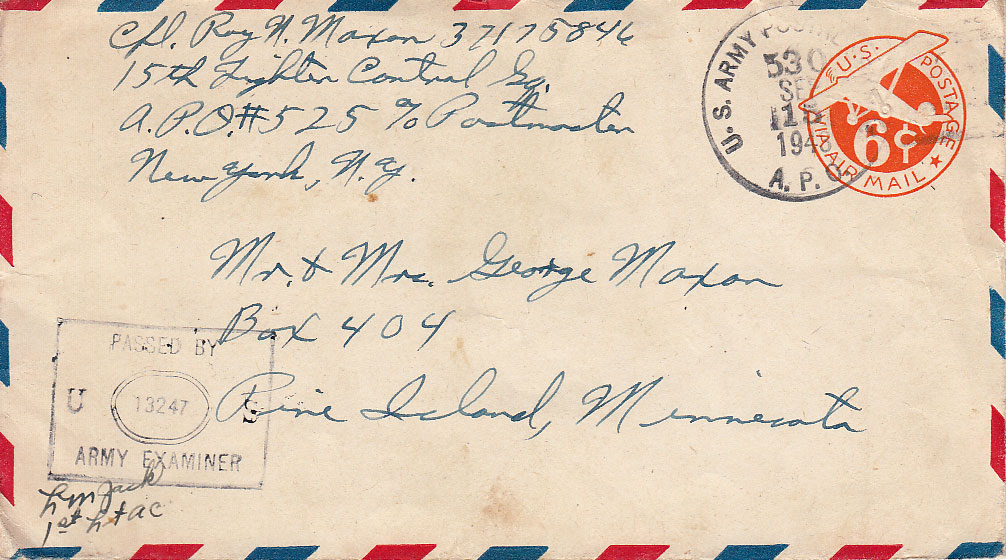 Cpl. Roy N. Maxon 37175846
15th Fighter Control Sq.
A.P.O.#525 % Postmaster
New York, N.Y.
U.S. ARMY POSTAL
530
SE
1943
A. P. O.
U.S. POSTAGE
6¢
VIA AIR MAIL
Mr. & Mrs. George Maxon
Box 404
Pine Island, Minnesota
PASSED BY
U 13247 S
ARMY EXAMINER
Jack
1st Lt AC